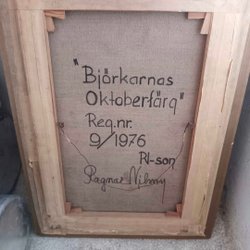 "Björkarnas
Oktoberfärg"
Reg.nr.
9/1976
RN-son
Ragnar